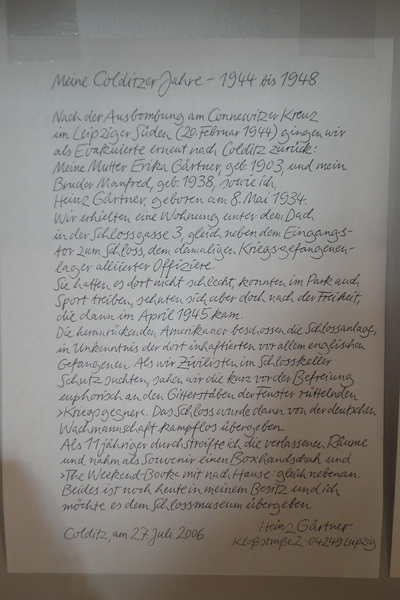 Meine Colditzer Jahre – 1944 bis 1948
Nach der Ausbombung am Connewitzer Kreuz
im Leipziger Süden (20. Februar 1944) gingen wir
als Evakuierte erneut nach Colditz zurück:
Meine Mutter Erika Gärtner, geb. 1903, und mein
Bruder Manfred, geb. 1938, sowie ich,
Heinz Gärtner, geboren am 8. Mai 1934.
Wir erhielten eine Wohnung unter dem Dach
in der Schlossgasse 3, gleich neben dem Eingangs-
tor zum Schloss, dem damaligen Kriegsgefangenen-
lager alliierter Offiziere.
Sie hatten es dort nicht schlecht, konnten im Park auch
Sport treiben, sehnten sich aber doch nach der Freiheit,
die dann im April 1945 kam.
Die heranrückenden Amerikaner beschossen die Schlossanlage,
in Unkenntnis der dort inhaftierten vor allem englischen
Gefangenen. Als wir Zivilisten im Schlosskeller
Schutz suchten, sahen wir die kurz vor der Befreiung
euphorisch an den Gitterstäben der Fenster rüttelnden
›Kriegsgegner‹. Das Schloss wurde dann von der deutschen
Wachmannschaft kampflos übergeben.
Als 11jähriger durchstreifte ich die verlassenen Räume
und nahm als Souvenir einen Boxhandschuh und
›The Weekend-Book‹ mit nach Hause: gleich nebenan.
Beides ist noch heute in meinem Besitz und ich
möchte es dem Schlossmuseum übergeben
Colditz, am 27. Juli 2006
Heinz Gärtner
04249 Leipzig